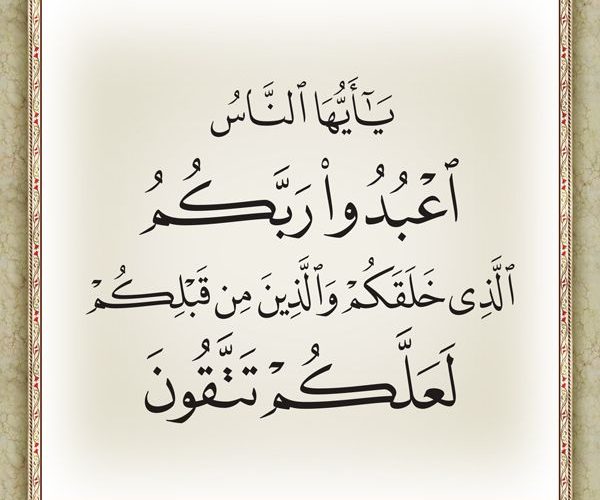 يَـٰٓأَيُّهَا ٱلنَّاسُ
ٱعْبُدُوا۟ رَبَّكُمُ
ٱلَّذِى خَلَقَكُمْ وَٱلَّذِينَ مِن قَبْلِكُمْ
لَعَلَّكُمْ تَتَّقُونَ